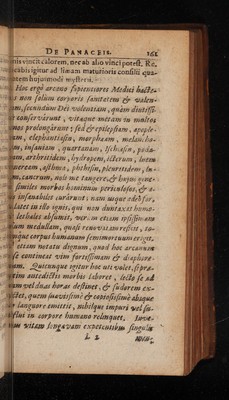 DE PANACEIS. 161
nis vincit calorem, nec ab alio vinci potest. Re,
cabis igitur ad limam maturioris consilii qua
tem hujusmodi mysterii.
Hoc ergò arcano sapientiores Medici hacte-
nis non solùm corporis sanitatem & valen-
am, secundùm Dei voluntatem, quàm diutissi-
conservârunt, vitamque metam in multos
nos prolongârunt: sed & epilepsiam, apople-
am, elephantiasin, morphœam, melancho-
m, insaniam, quartanam, Ischiasin, poda-
am, arthritidem, hydropem, icterum, luem
veream, asthma, phthisin, pleuritidem, in-
m, cancrum, noli me tangere, & hujus gene-
similes morbos hominum periculosos, & a-
s insanabiles curârunt: nam usque adeò sur,
latet in illo ignis, qui non duntaxat homi-
lethales absumit, verùm etiam ipsissimam
um medullam, quasi renovatam reficit, to-
mque corpus humanum semimortuum erigit,
etiam notatu dignum, quòd hoc arcanum
se contineat vim fortissimam & diaphore-
am. Quicunque igitur hoc uti volet, si præ-
tim antedictis morbis laboret, lecto se ad
am vel duas horas destinet, & sudorem ex-
ctet, quem suavissimè & copiosissimè absque
languore emittit, nihilque impuri vel su-
flui in corpore humano relinquet. Juve-
m vitam longævam expetentibus singulis
L 2 men-